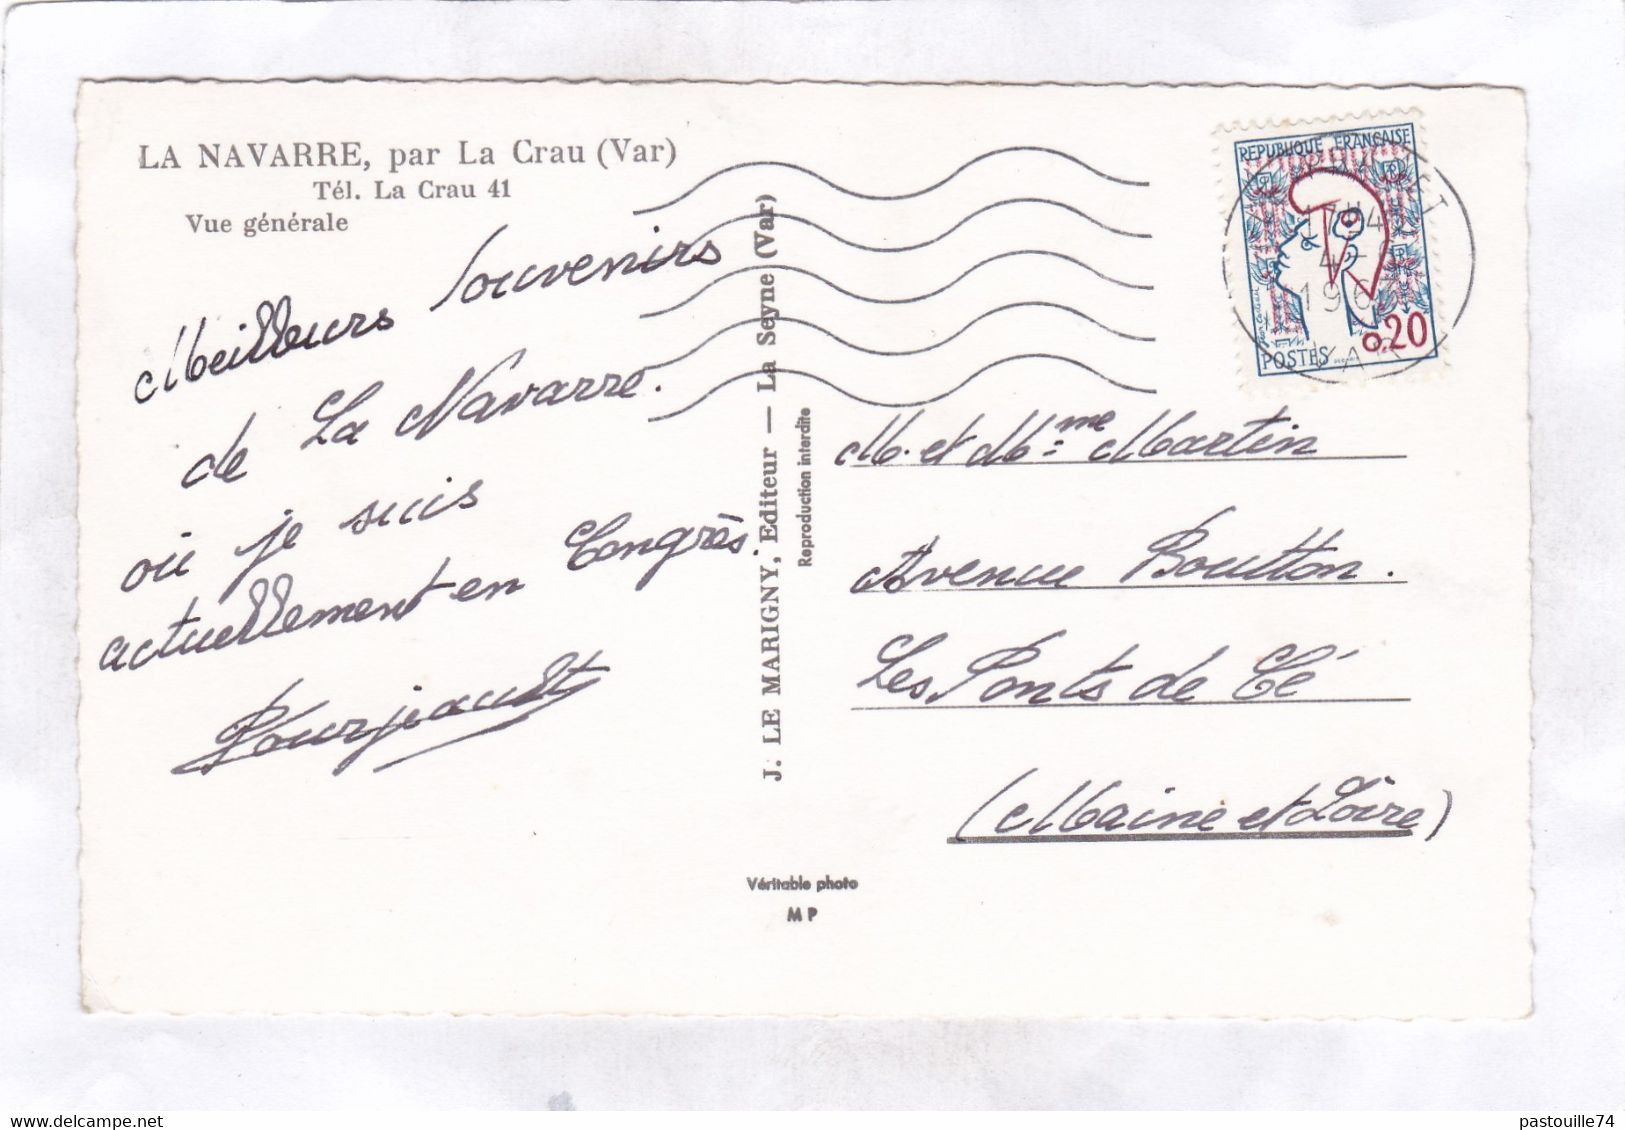 LA NAVARRE, par La Crau (Var)
Tél. La Crau 41
Vue générale
Meilleurs Souvenirs
de La Navarre.
où je suis
actuellement en Congrès.
Bourjeault
J. LE MARIGNY, Editeur — La Seyne (Var)
Reproduction interdite
REPUBLIQUE FRANÇAISE
POSTES
0,20
M. et Mme Martin
Avenue Boutton.
Les Ponts de Cé
(Maine et Loire)
Véritable photo
M P
www.delcampe.net
pastouille74